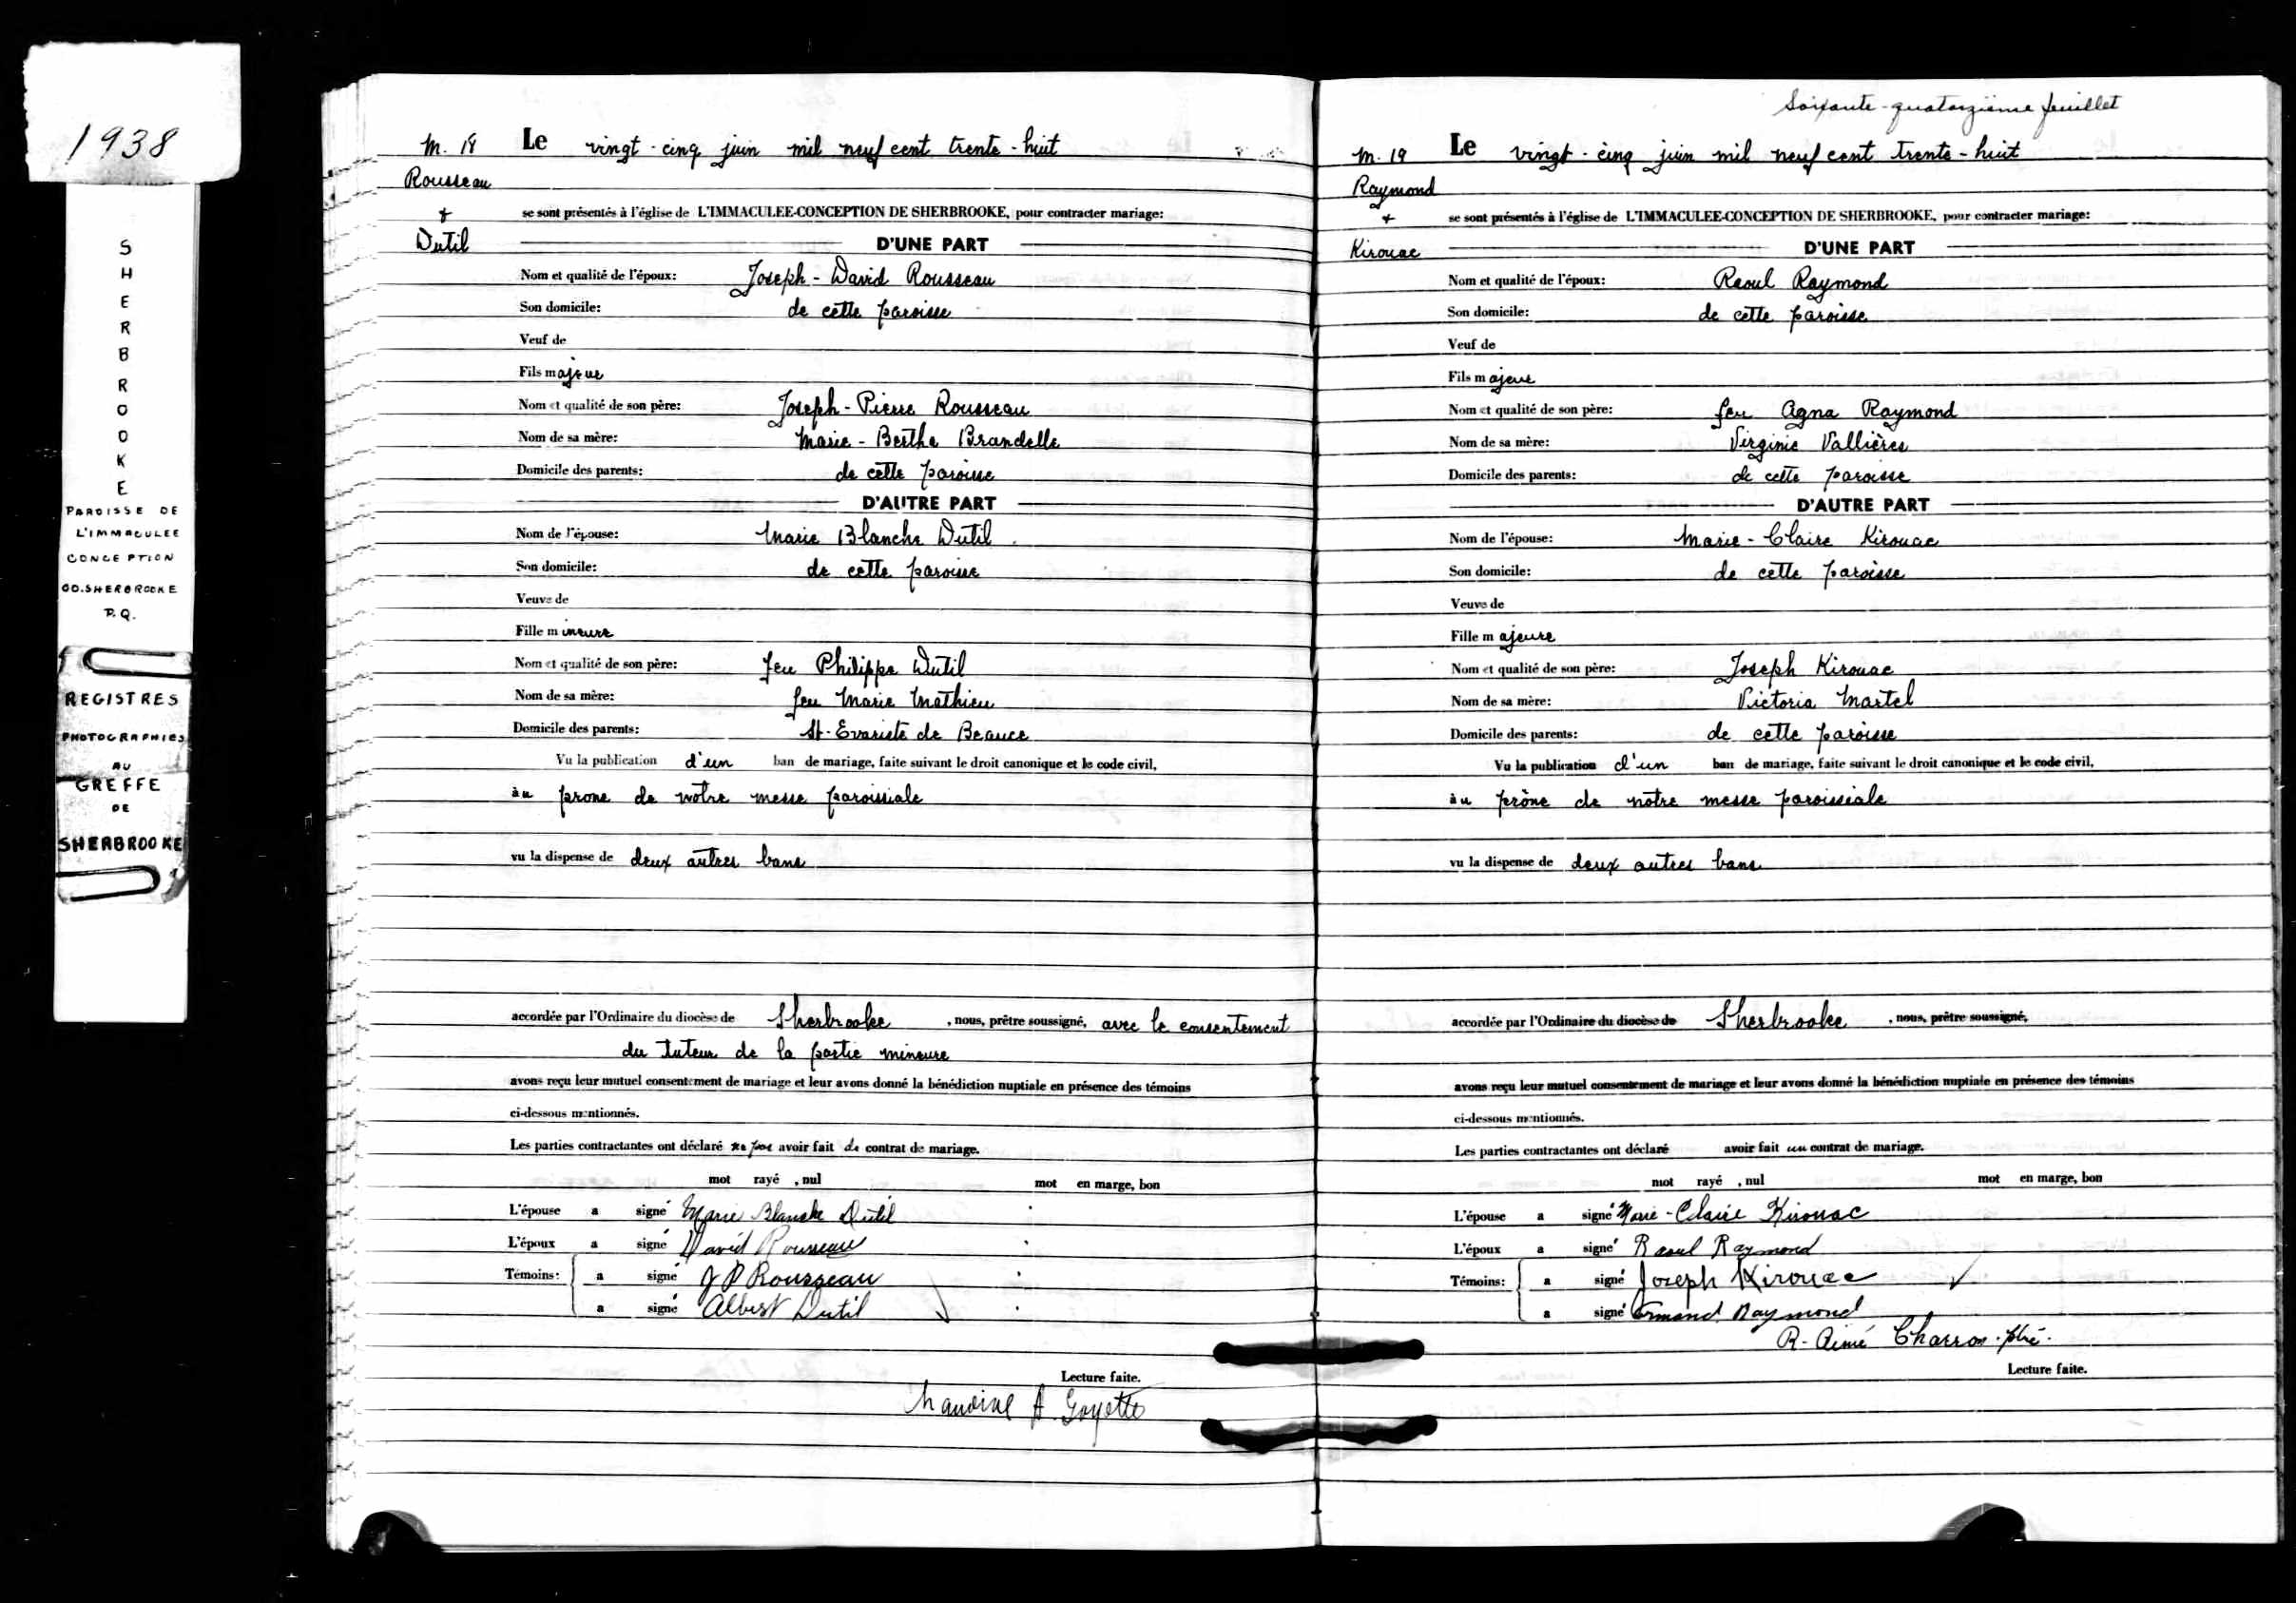 1938
SHERBROOKE
PAROISSE DE
L'IMMACULEE
CONCEPTION
CO.SHERBROOKE
P.Q.
REGISTRES
PHOTOGRAPHIES
AU
GREFFE
DE
SHERBROOKE
M. 18
Rousseau
&
Dutil
Le vingt-cinq juin mil neuf cent trente-huit
se sont présentés à l'église de L'IMMACULEE-CONCEPTION DE SHERBROOKE, pour contracter mariage:
D'UNE PART
Nom et qualité de l'époux: Joseph-David Rousseau
Son domicile: de cette paroisse
Veuf de
Fils majeur
Nom et qualité de son père: Joseph-Pierre Rousseau
Nom de sa mère: Marie-Berthe Brandelle
Domicile des parents: de cette paroisse
D'AUTRE PART
Nom de l'épouse: Marie Blanche Dutil
Son domicile: de cette paroisse
Veuve de
Fille mineure
Nom et qualité de son père: feu Philippe Dutil
Nom de sa mère: feu Marie Mathieu
Domicile des parents: St-Evariste de Beauce
Vu la publication d'un ban de mariage, faite suivant le droit canonique et le code civil,
au prone de notre messe paroissiale
vu la dispense de deux autres bans
accordée par l'Ordinaire du diocèse de Sherbrooke, nous, prêtre soussigné, avec le consentement
du tuteur de la partie mineure
avons reçu leur mutuel consentement de mariage et leur avons donné la bénédiction nuptiale en présence des témoins
ci-dessous mentionnés.
Les parties contractantes ont déclaré ne pas avoir fait de contrat de mariage.
mot rayé , nul mot en marge, bon
L'épouse a signé Marie Blanche Dutil
L'époux a signé David Rousseau
Témoins: a signé J P Rousseau
a signé Albert Dutil
Lecture faite.
A. Goyette
Soixante-quatorzième feuillet
M. 19
Raymond
&
Kirouac
Le vingt-cinq juin mil neuf cent trente-huit
se sont présentés à l'église de L'IMMACULEE-CONCEPTION DE SHERBROOKE, pour contracter mariage:
D'UNE PART
Nom et qualité de l'époux: Raoul Raymond
Son domicile: de cette paroisse
Veuf de
Fils majeur
Nom et qualité de son père: feu Agna Raymond
Nom de sa mère: Virginie Vallières
Domicile des parents: de cette paroisse
D'AUTRE PART
Nom de l'épouse: Marie-Claire Kirouac
Son domicile: de cette paroisse
Veuve de
Fille majeure
Nom et qualité de son père: Joseph Kirouac
Nom de sa mère: Victoria Martel
Domicile des parents: de cette paroisse
Vu la publication d'un ban de mariage, faite suivant le droit canonique et le code civil,
au prône de notre messe paroissiale
vu la dispense de deux autres bans
accordée par l'Ordinaire du diocèse de Sherbrooke, nous, prêtre soussigné,
avons reçu leur mutuel consentement de mariage et leur avons donné la bénédiction nuptiale en présence des témoins
ci-dessous mentionnés.
Les parties contractantes ont déclaré avoir fait un contrat de mariage.
mot rayé , nul mot en marge, bon
L'épouse a signé Marie-Claire Kirouac
L'époux a signé Raoul Raymond
Témoins: a signé Joseph Kirouac
a signé Armand Raymond
R-Aimé Charron ptre.
Lecture faite.